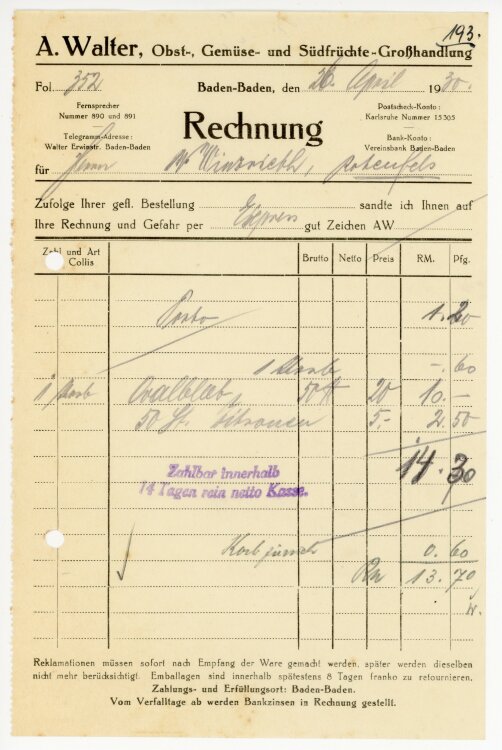 193.
A. Walter, Obst-, Gemüse- und Südfrüchte-Großhandlung
Fol. 352 Baden-Baden, den 26. April 1930.
Fernsprecher
Nummer 890 und 891
Telegramm-Adresse:
Walter Erwinstr. Baden-Baden
Rechnung
Postscheck-Konto:
Karlsruhe Nummer 15305
Bank-Konto:
Vereinsbank Baden-Baden
für Herrn Rotenfels
Zufolge Ihrer gefl. Bestellung sandte ich Ihnen auf
Ihre Rechnung und Gefahr per Express gut Zeichen AW
Zahl und Art Collis Brutto Netto Preis RM. Pfg.
Porto 1.20
1 Korb -.60
1 Korb 50 20 10.-
50 St. Zitronen 5.- 2.50
14.30
Zahlbar innerhalb
14 Tagen rein netto Kasse.
Korb zurück 0.60
13.70
Reklamationen müssen sofort nach Empfang der Ware gemacht werden, später werden dieselben
nicht mehr berücksichtigt. Emballagen sind innerhalb spätestens 8 Tagen franko zu retournieren.
Zahlungs- und Erfüllungsort: Baden-Baden.
Vom Verfalltage ab werden Bankzinsen in Rechnung gestellt.